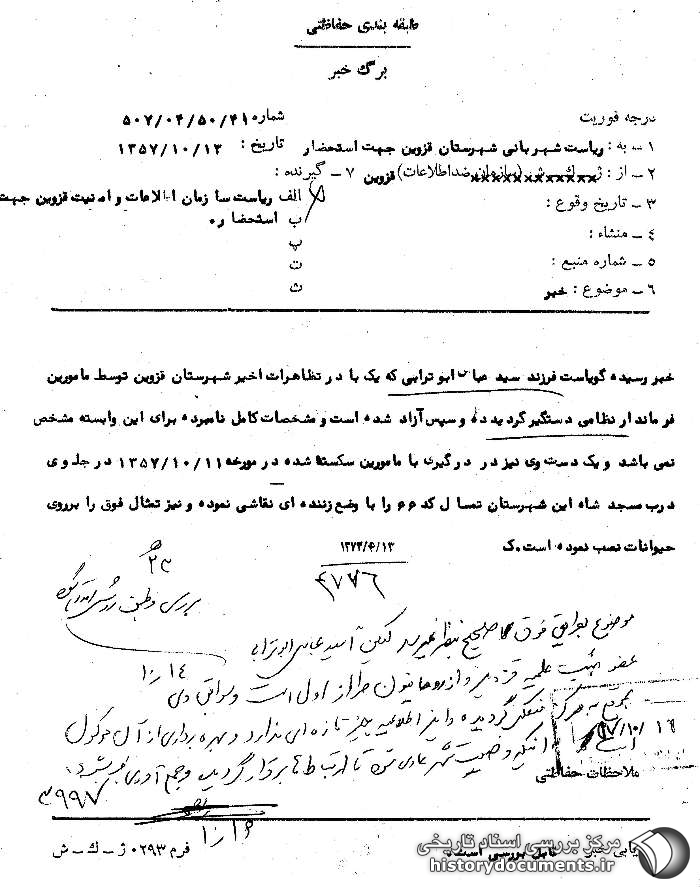 طبقه بندی حفاظتی
برگ خبر
درجه فوریت
شماره ۵۰۷/۰۴/۵۰/۴۱
۱ – به : ریاست شهربانی شهرستان قزوین جهت استحضار
تاریخ : ۱۳۵۷/۱۰/۱۳
۲ – از : ژ – ک – ش (سازمان ضداطلاعات) قزوین
۷ – گیرنده :
۳ – تاریخ وقوع :
الف ریاست سازمان اطلاعات و امنیت قزوین جهت
ب استحضار ه.
۴ – منشاء :
پ
۵ – شماره منبع :
ت
۶ – موضوع : خبر
ث
خبر رسیده گویاست فرزند سید عباس ابوترابی که یک با در تظاهرات اخیر شهرستان قزوین توسط مامورین
فرماندار نظامی دستگیر گردیده و سپس آزاد شده است و مشخصات کامل نامبرده برای این وابسته مشخص
نمی باشد و یک دست وی نیز در درگیری با مامورین شکسته شده در مورخه ۱۳۵۷/۱۰/۱۱ در جلوی
درب مسجد شاه این شهرستان تمسال کد ۶۶ را با وضع زننده ای نقاشی نموده و نیز تمثال فوق را برروی
حیوانات نصب نموده است.ک
۲۳
۴۷۷۶
بررسی و طبق روش اقدام گردد
موضوع بطرایق فوق صحیح بنظر نمیرسد لیکن سید عباس ابوترابی
عضو هیئت علمیه قزوین و از روحانیون طراز اول است و سوابق وی
۱۴/۱۰
به مرکز منعکس گردیده و این اعلامیه چیز تازه ای ندارد و بهره برداری از آن موکول
۱۶
۵۷/۱۰/
اینکه وضعیت شهر عادی شده تا ارتباط ها برقرار گردیده و جمع آوری خبر بشود.
ملاحظات حفاظتی
۳۹۹۷
۱۶/۱۰
فرم ۰۲۹۳ ژ – ک – ش
قابل بررسی است
مرکز بررسی اسناد تاریخی
historydocuments.ir